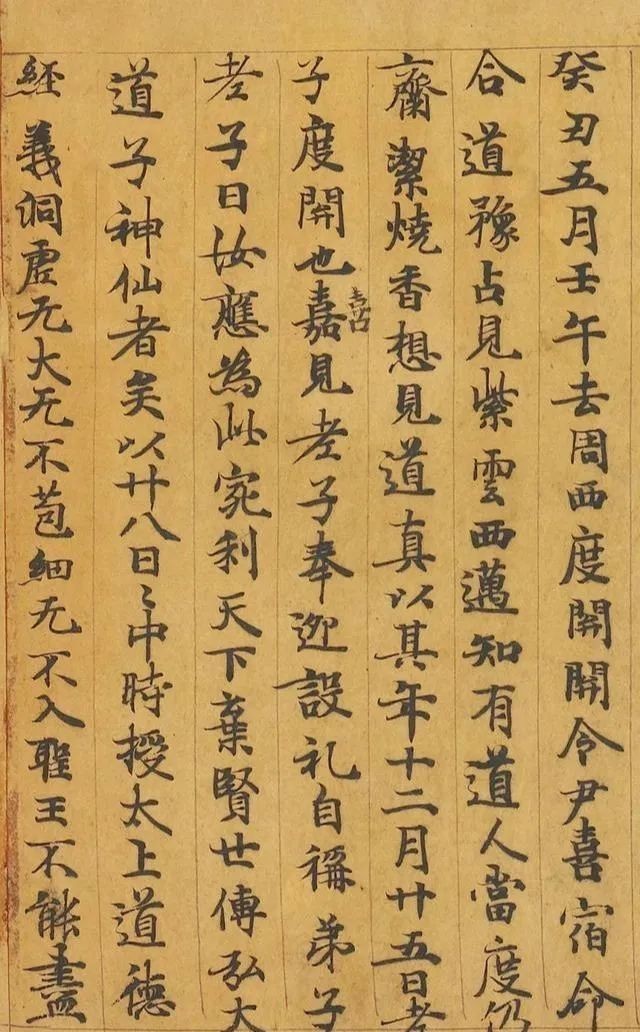 癸丑五月壬午去周西度關關令尹喜宿命
合道豫占見紫雲西邁知有道人當度仍
齋潔燒香想見道真以其年十二月廿五日老
子度開也嘉喜見老子奉迎設礼自稱弟子
老子曰汝應為此宛利天下棄賢世傳弘大
道子神仙者矣以廿八日〻中時授太上道德
經義洞虛无大无不苞細无不入聖王不能盡